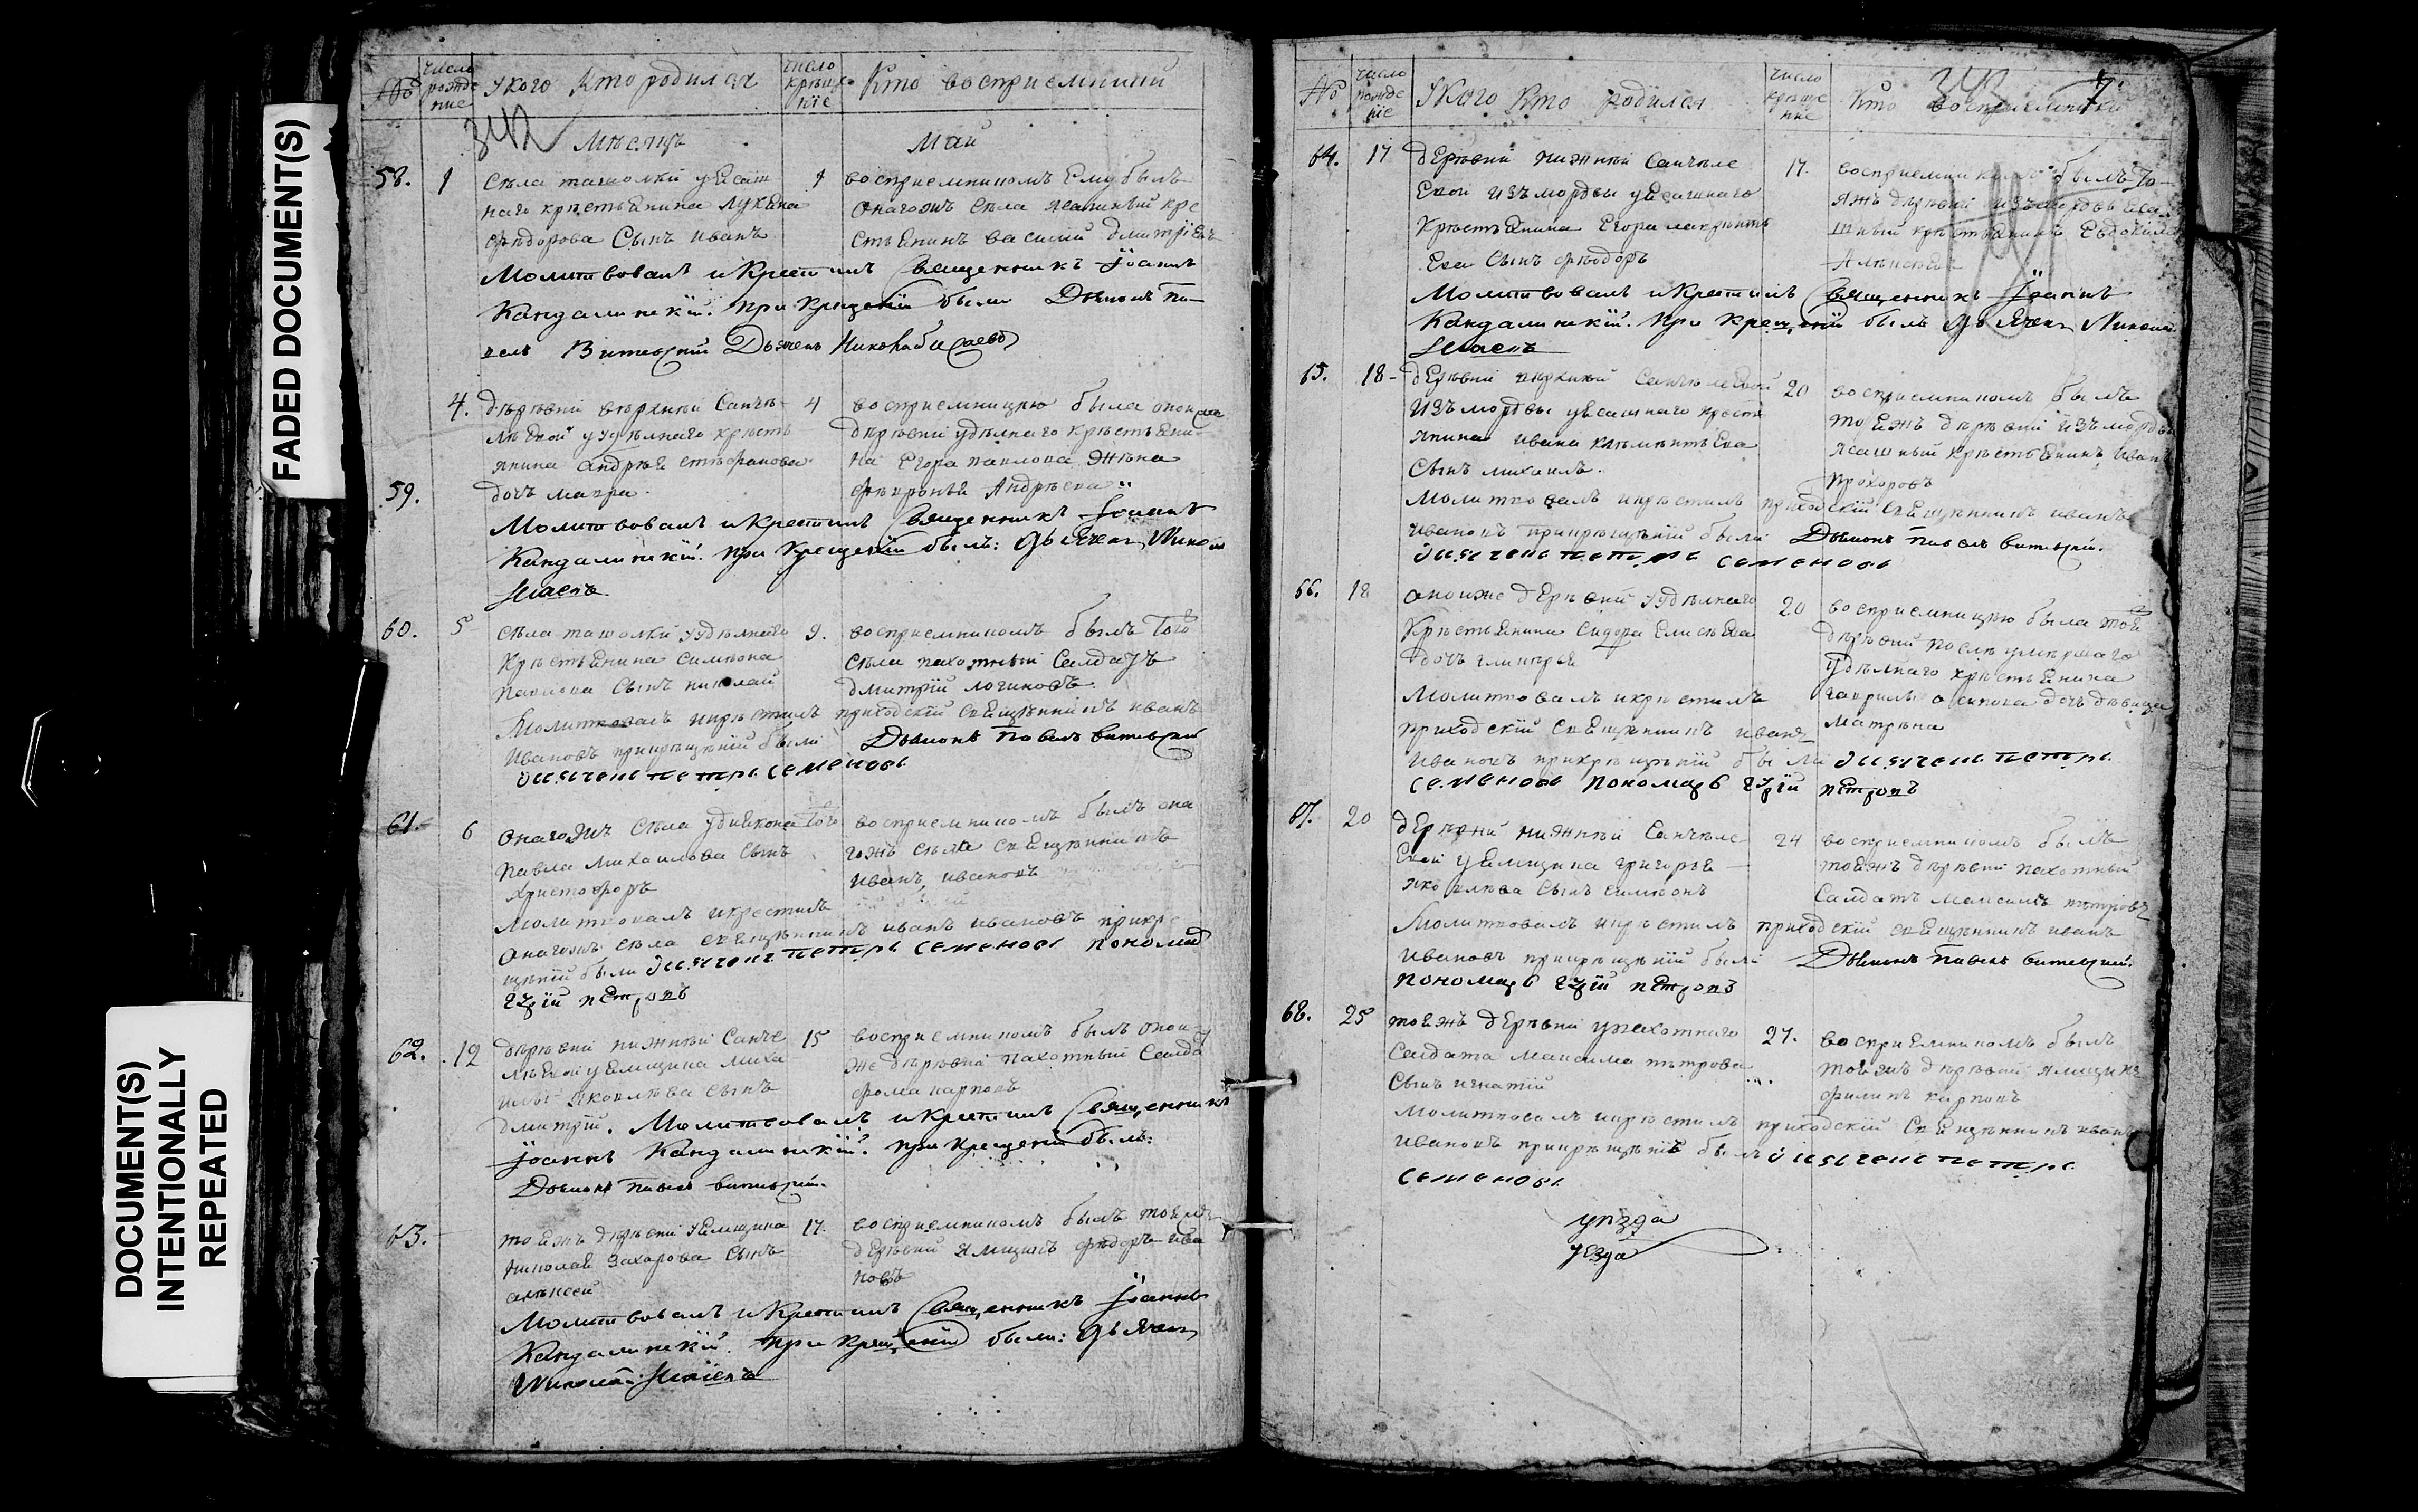 FADED DOCUMENT(S)
DOCUMENT(S)
INTENTIONALLY
REPEATED
№
число рожде ние
У кого Кто родился
число крещ ніе
Кто восприемники
342
Месяцъ Маи
58.
1
села ташолки у ясаш
наго крестьянина Луки
Федорова Сынъ иванъ
восприемникомъ Ему былъ
онагожъ Села ясашный кре
стьянинъ василий дмитріевъ
Молитвовалъ и Крестилъ Священникъ Іоаннъ
Кандалинскій. при Крещеніи были Дьяконъ Па-
велъ Витевскій Дьячекъ Николай
59.
4.
деревни верхней Санче-
леевой у удельнаго кресть
янина Андрея стефанова
дочь мавра.
4
восприемницею была оной же
деревни удельнаго крестьяни-
на Егора павлова жена
Андреева
Молитвовалъ и Крестилъ Священникъ Іоаннъ
Кандалинскій. при Крещеніи былъ: дьячекъ Николай
60.
5
села ташолки у удельнаго
Крестьянина симеона
павлова Сынъ николай
9.
восприемникомъ былъ того
села пахотный Салдатъ
дмитрій логиновъ.
Молитвовалъ и крестилъ приходскій священникъ иванъ
Ивановъ при крещеніи были Дьяконъ Павелъ витевскій
дьячекъ петръ семеновъ
61.
6
онагожъ Села у диякона
павла михаилова Сынъ
христофоръ
того
восприемникомъ былъ она
гожъ села священникъ
иванъ ивановъ
молитвовалъ и крестилъ
онагожъ села священникъ иванъ ивановъ при кре
щеніи были дьячекъ петръ семеновъ пономарь
гурій петровъ
62.
12
деревни нижней Санче
леевой у ямщика миха
илы яковлева Сынъ
дмитрій.
15
восприемникомъ былъ оной
же деревни пахотный Салда
фома карповъ
Молитвовалъ и Крестилъ Священникъ
Іоаннъ Кандалинскій. при крещеніи былъ:
Дьяконъ Павелъ витевскій.
63.
тоежъ деревни у ямщика
николая захарова Сынъ
алексеи
17.
восприемникомъ былъ тоежъ
деревни ямщикъ федоръ ива
новъ
Молитвовалъ и Крестилъ Священникъ Іоаннъ
Кандалинскій. при крещеніи были: дьячекъ
Николай
№
число рожде ніе
У Кого Кто родился
число креще ние
Кто восприемники
343
7.
64.
17
деревни нижней санчеле
евой изъ мордвы у ясашнаго
Крестьянина Егора
Сынъ федоръ
17.
восприемникомъ былъ то-
яжъ деревни изъ мордвы яса
шный крестьянинъ Евдокимъ
Алексеевъ
Молитвовалъ и Крестилъ Священникъ Іоаннъ
Кандалинскій. при крещеніи былъ дьячекъ Николай
65.
18
деревни верхней Санчелеевой
Изъ мордвы у ясашнаго кресть
янина ивана клементьева
Сынъ михаилъ.
20
восприемникомъ былъ
тоежъ деревни изъ мордвы
ясашный крестьянинъ иванъ
прохоровъ
молитвовалъ и крестилъ приходскій священникъ иванъ
ивановъ при крещеніи были Дьяконъ Павелъ витевскій.
дьячекъ петръ семеновъ
66.
18
оной же деревни у удельнаго
Крестьянина Сидора Елисеева
дочь гликерья
20
восприемницею была той
деревни после умершаго
удельнаго крестьянина
гаврилы осипова дочь девица
матрена
молитвовалъ и крестилъ
приходскій священникъ иванъ
ивановъ при крещеніи были дьячекъ петръ
семеновъ пономарь гурій петровъ
67.
20
деревни нижней Санчеле
евой у ямщика григорья
яковлева сынъ симеонъ
24
восприемникомъ былъ
тоежъ деревни пахотный
Салдатъ Максимъ петровъ
молитвовалъ и крестилъ приходскій священникъ иванъ
ивановъ при крещеніи были Дьяконъ павелъ витевскій.
пономарь гурій петровъ
68.
25
тоежъ деревни у пахотнаго
Салдата максима петрова
Сынъ игнатій
27.
восприемникомъ былъ
тоежъ деревни ямщикъ
филипъ карповъ
молитвовалъ и крестилъ приходскій священникъ иванъ
ивановъ при крещеніи былъ дьячекъ петръ
семеновъ.